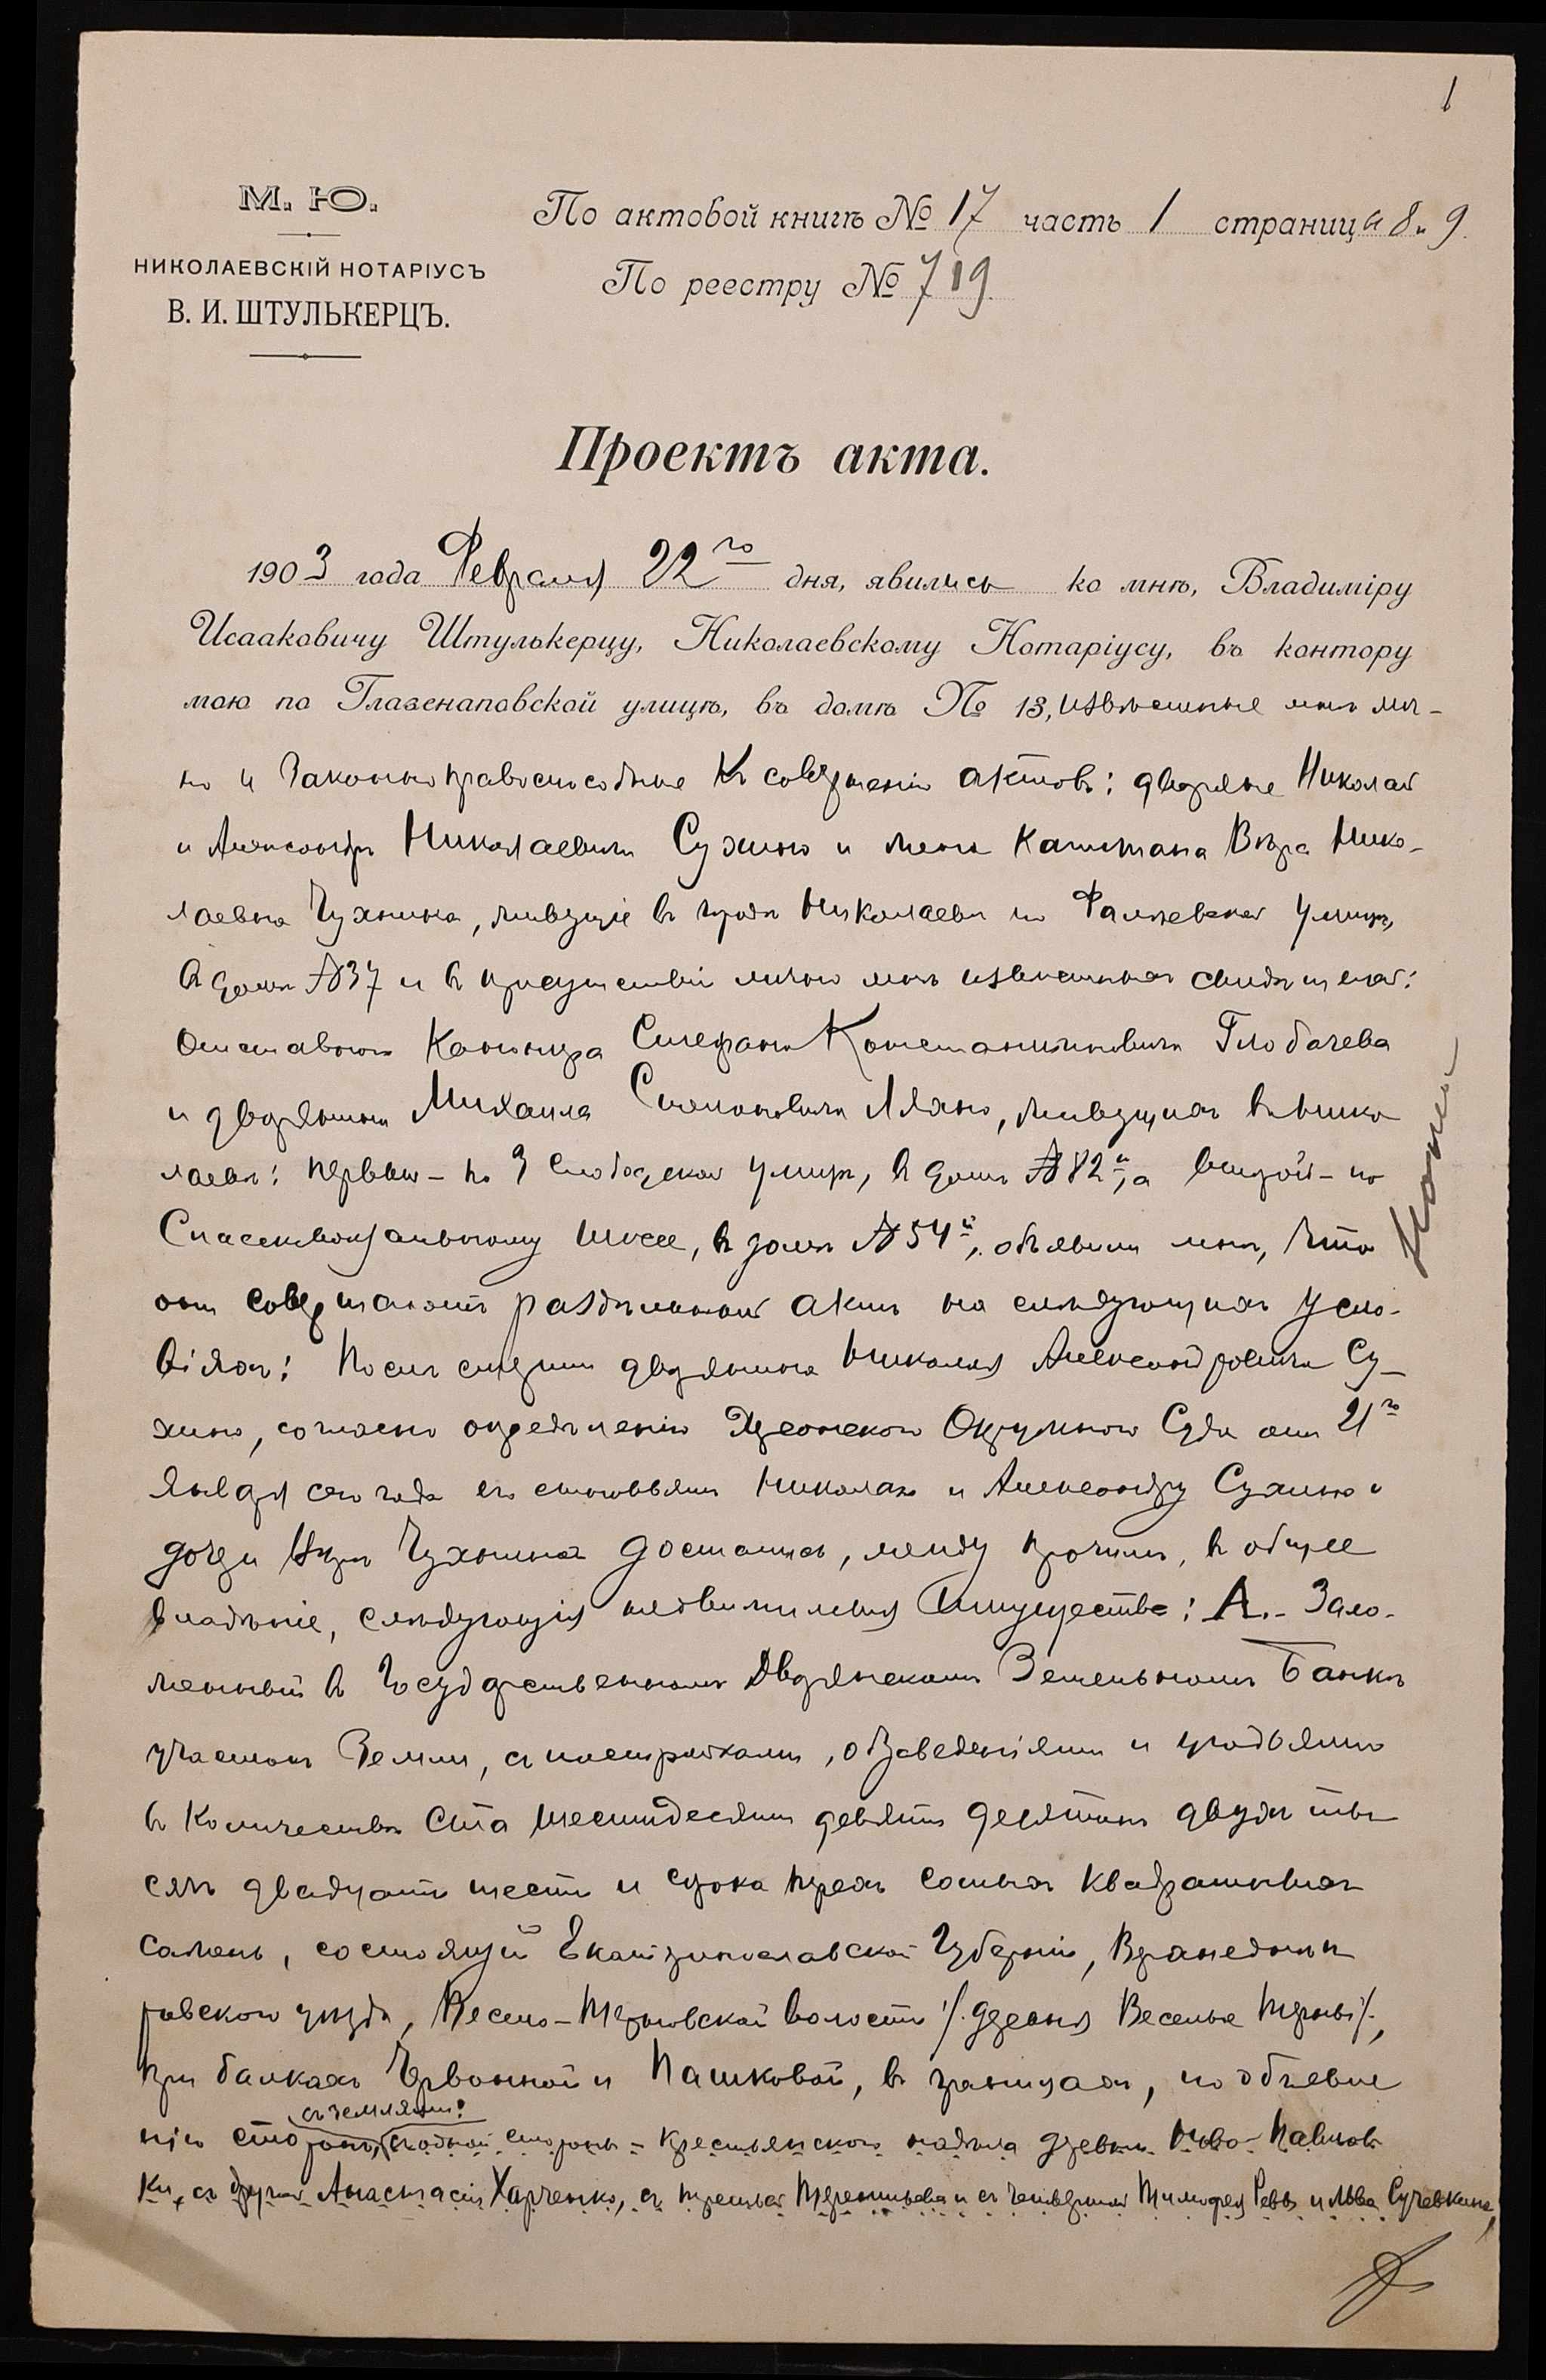 1
М. Ю.
НИКОЛАЕВСКІЙ НОТАРІУСЪ
В. И. ШТУЛЬКЕРЦЪ.
По актовой книгѣ № 17 часть 1 страница 8 и 9.
По реестру № 719.
Проектъ акта.
1903 года Февраля 22го дня, явились ко мнѣ, Владиміру
Исааковичу Штулькерцу, Николаевскому Нотаріусу, въ контору
мою по Глазенаповской улицѣ, въ домѣ № 13, извѣстные мнѣ лич-
но и законно правоспособные къ совершенію актовъ: дворяне Николай
и Александръ Николаевичи Сухино и жена Капитана Вѣра Нико-
лаевна Чухнина, живущіе въ городѣ Николаевѣ по Фалѣевской улицѣ,
въ домѣ №37 и въ присутствіи лично мнѣ извѣстныхъ свидѣтелей:
Отставного Кондуктора Стефана Константиновича Глобачева
и дворянина Михаила Лядно, живущихъ въ Нико-
лаевѣ: первый – по 3 Слободской улицѣ, въ домѣ №82й, а второй – по
Спасскому шоссе, въ домѣ №54й, объявили мнѣ, что
они совершаютъ раздѣльный актъ на слѣдующихъ усло-
віяхъ: Послѣ смерти дворянина Николая Александровича Су-
хино, согласно опредѣленію Херсонскаго Окружнаго Суда отъ 21го
Января сего года его сыновьямъ Николаю и Александру Сухино и
дочери Вѣрѣ Чухниной достались, между прочимъ, въ общее
владѣніе, слѣдующія недвижимыя имущества: А.- Зало-
женный въ Государственномъ Дворянскомъ Земельномъ Банкѣ
участокъ Земли, съ постройками, обзаведеніями и угодьями
въ количествѣ ста шестидесяти девяти десятинъ двухъ ты-
сячъ двадцати шести и сорока трехъ сотыхъ квадратныхъ
сажень, состоящій Екатеринославской Губерніи, Верхнеднѣп-
ровскаго уѣзда, Весело-Терновской волости /. деревня Веселые Терны/.,
при балкахъ Червонной и Пашковой, въ границахъ, по объявле-
съ землями:
нію сторонъ, съ одной стороны – крестьянскаго надѣла деревни Ново-Павлов-
ки, съ другой Анастасіи Харченко, съ третьей Терентьева и съ четвертой Тимофея Ревы и Льва Сучевкина,